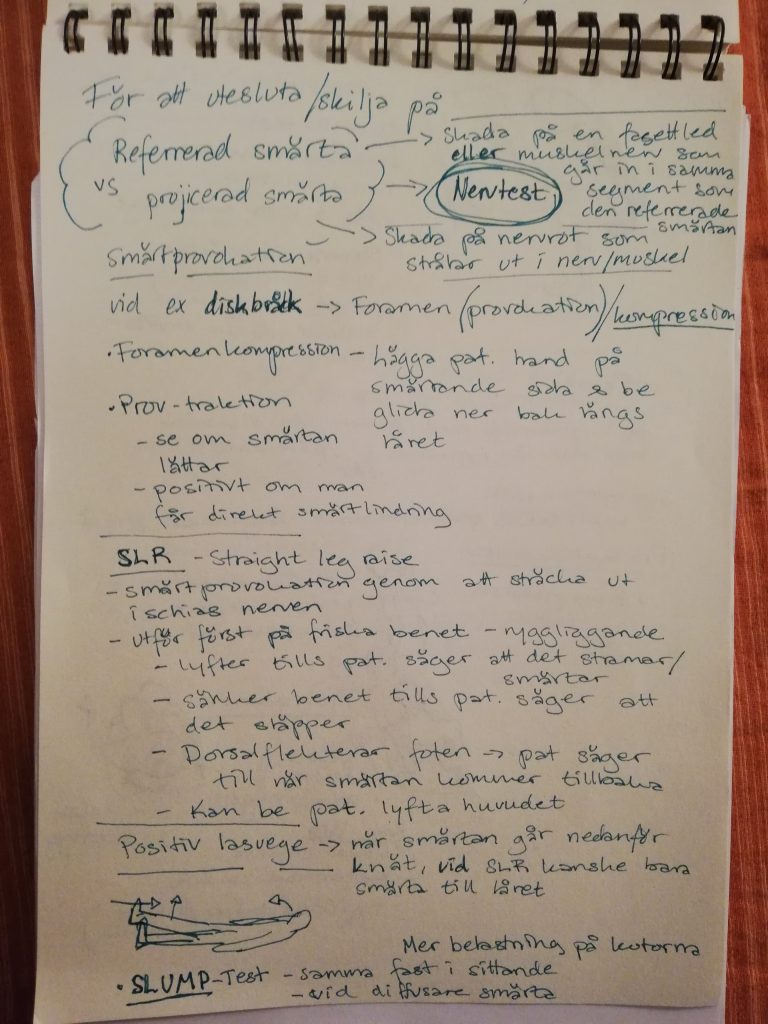 För att utesluta/skilja på
Referrerad smärta -> Skada på en fasettled
eller muskel nerv som
går in i samma
vs projicerad smärta -> Nervtest segment som
den referrerade
smärtan
-> Skada på nervrot som
strålar ut i nerv/muskel
Smärtprovokation
vid ex diskbråck -> Foramen (provokation)/kompression
• Foramenkompression - lägga pat. hand på
smärtande sida & be
• Prov-traktion glida ner bak längs
- se om smärtan låret
lättar
- positivt om man
får direkt smärtlindring
SLR - Straight leg raise
- smärtprovokation genom att sträcka ut
ischias nerven
- utför först på friska benet - ryggliggande
- lyfter tills pat. säger att det stramar/
smärtar
- sänker benet tills pat. säger att
det släpper
- Dorsalflekterar foten -> pat säger
till när smärtan kommer tillbaka
- Kan be pat. lyfta huvudet
Positiv lasvege -> när smärtan går nedanför
knät, vid SLR kanske bara
smärta till låret
Mer belastning på kotorna
• SLUMP-Test - samma fast i sittande
- vid diffusare smärta